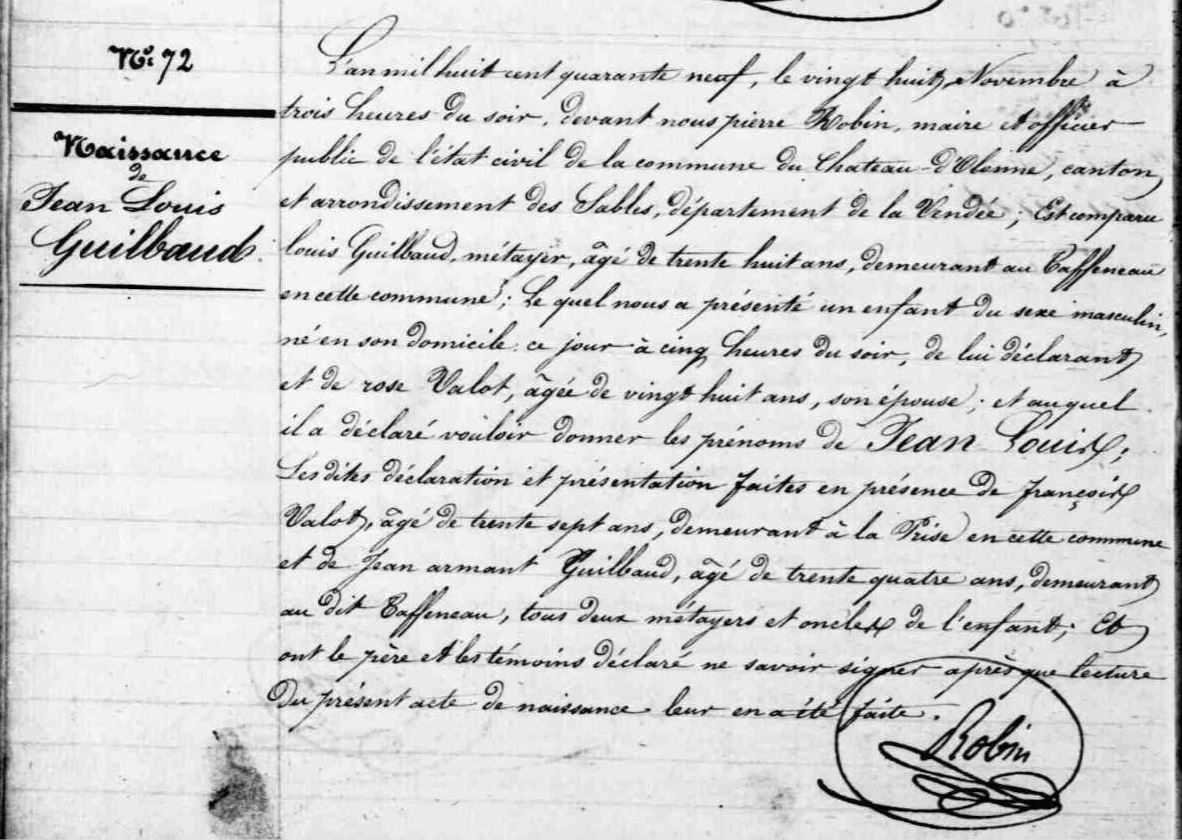 N.º 72
Naissance
de
Jean Louis
Guilbaud.
L'an mil huit cent quarante neuf, le vingt huit Novembre à
trois heures du soir, devant nous pierre Robin, maire et officier
public de l'état civil de la commune du Chateau-d'Olonne, canton
et arrondissement des Sables, département de la Vendée; Est comparu
louis Guilbaud, métayer, âgé de trente huit ans, demeurant au Taffeneau
en cette commune; Le quel nous a présenté un enfant du sexe masculin,
né en son domicile ce jour à cinq heures du soir, de lui déclarant
et de rose Valot, âgée de vingt huit ans, son épouse; et auquel
il a déclaré vouloir donner les prénoms de Jean Louis;
Les dites déclaration et présentation faites en présence de françois
Valot, âgé de trente sept ans, demeurant à la Prise en cette commune
et de Jean armant Guilbaud, âgé de trente quatre ans, demeurant
au dit Taffeneau, tous deux métayers et oncles de l'enfant; Et
ont le père et les témoins déclaré ne savoir signer après que lecture
du présent acte de naissance leur en a été faite.
Robin